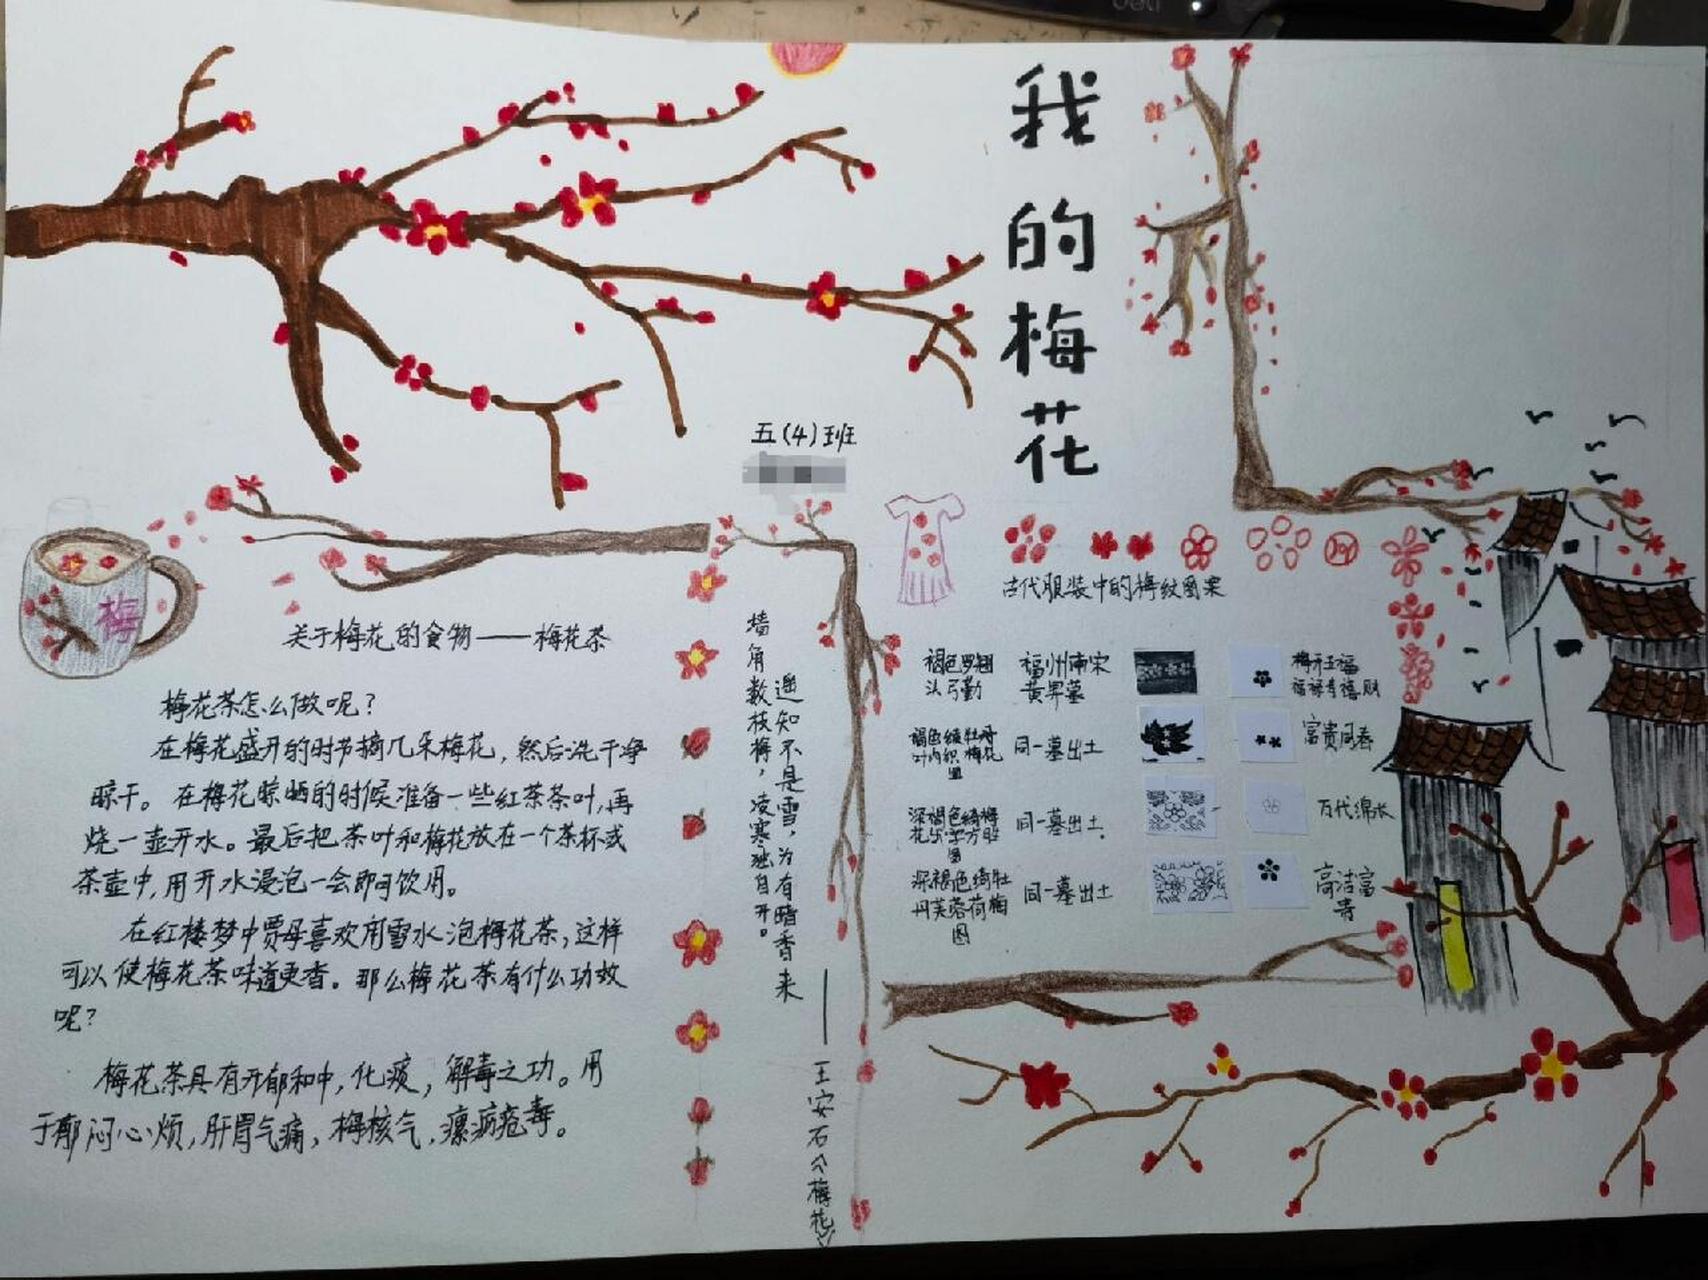 deli
我的梅花
五(4)班
梅
关于梅花的食物——梅花茶
梅花茶怎么做呢？
在梅花盛开的时节摘几朵梅花，然后洗干净
晾干。在梅花晾晒的时候准备一些红茶茶叶，再
烧一壶开水。最后把茶叶和梅花放在一个茶杯或
茶壶中，用开水浸泡一会即可饮用。
在红楼梦中贾母喜欢用雪水泡梅花茶，这样
可以使梅花茶味道更香。那么梅花茶有什么功效
呢？
梅花茶具有开郁和中，化痰，解毒之功。用
于郁闷心烦，肝胃气痛，梅核气，瘰疬疮毒。
墙角数枝梅，凌寒独自开。
遥知不是雪，为有暗香来
——王安石《梅花》
古代服装中的梅纹图案
褐色罗翘
头弓勤
福州南宋
黄昇墓
梅开五福
福禄寿禧财
褐色绫牡丹
叶内织梅花
图
同一墓出土
富贵同春
深褐色绮梅
同一墓出土.
万代绵长
深褐色绮牡
丹芙蓉荷梅
图
同一墓出土
高洁富
寿